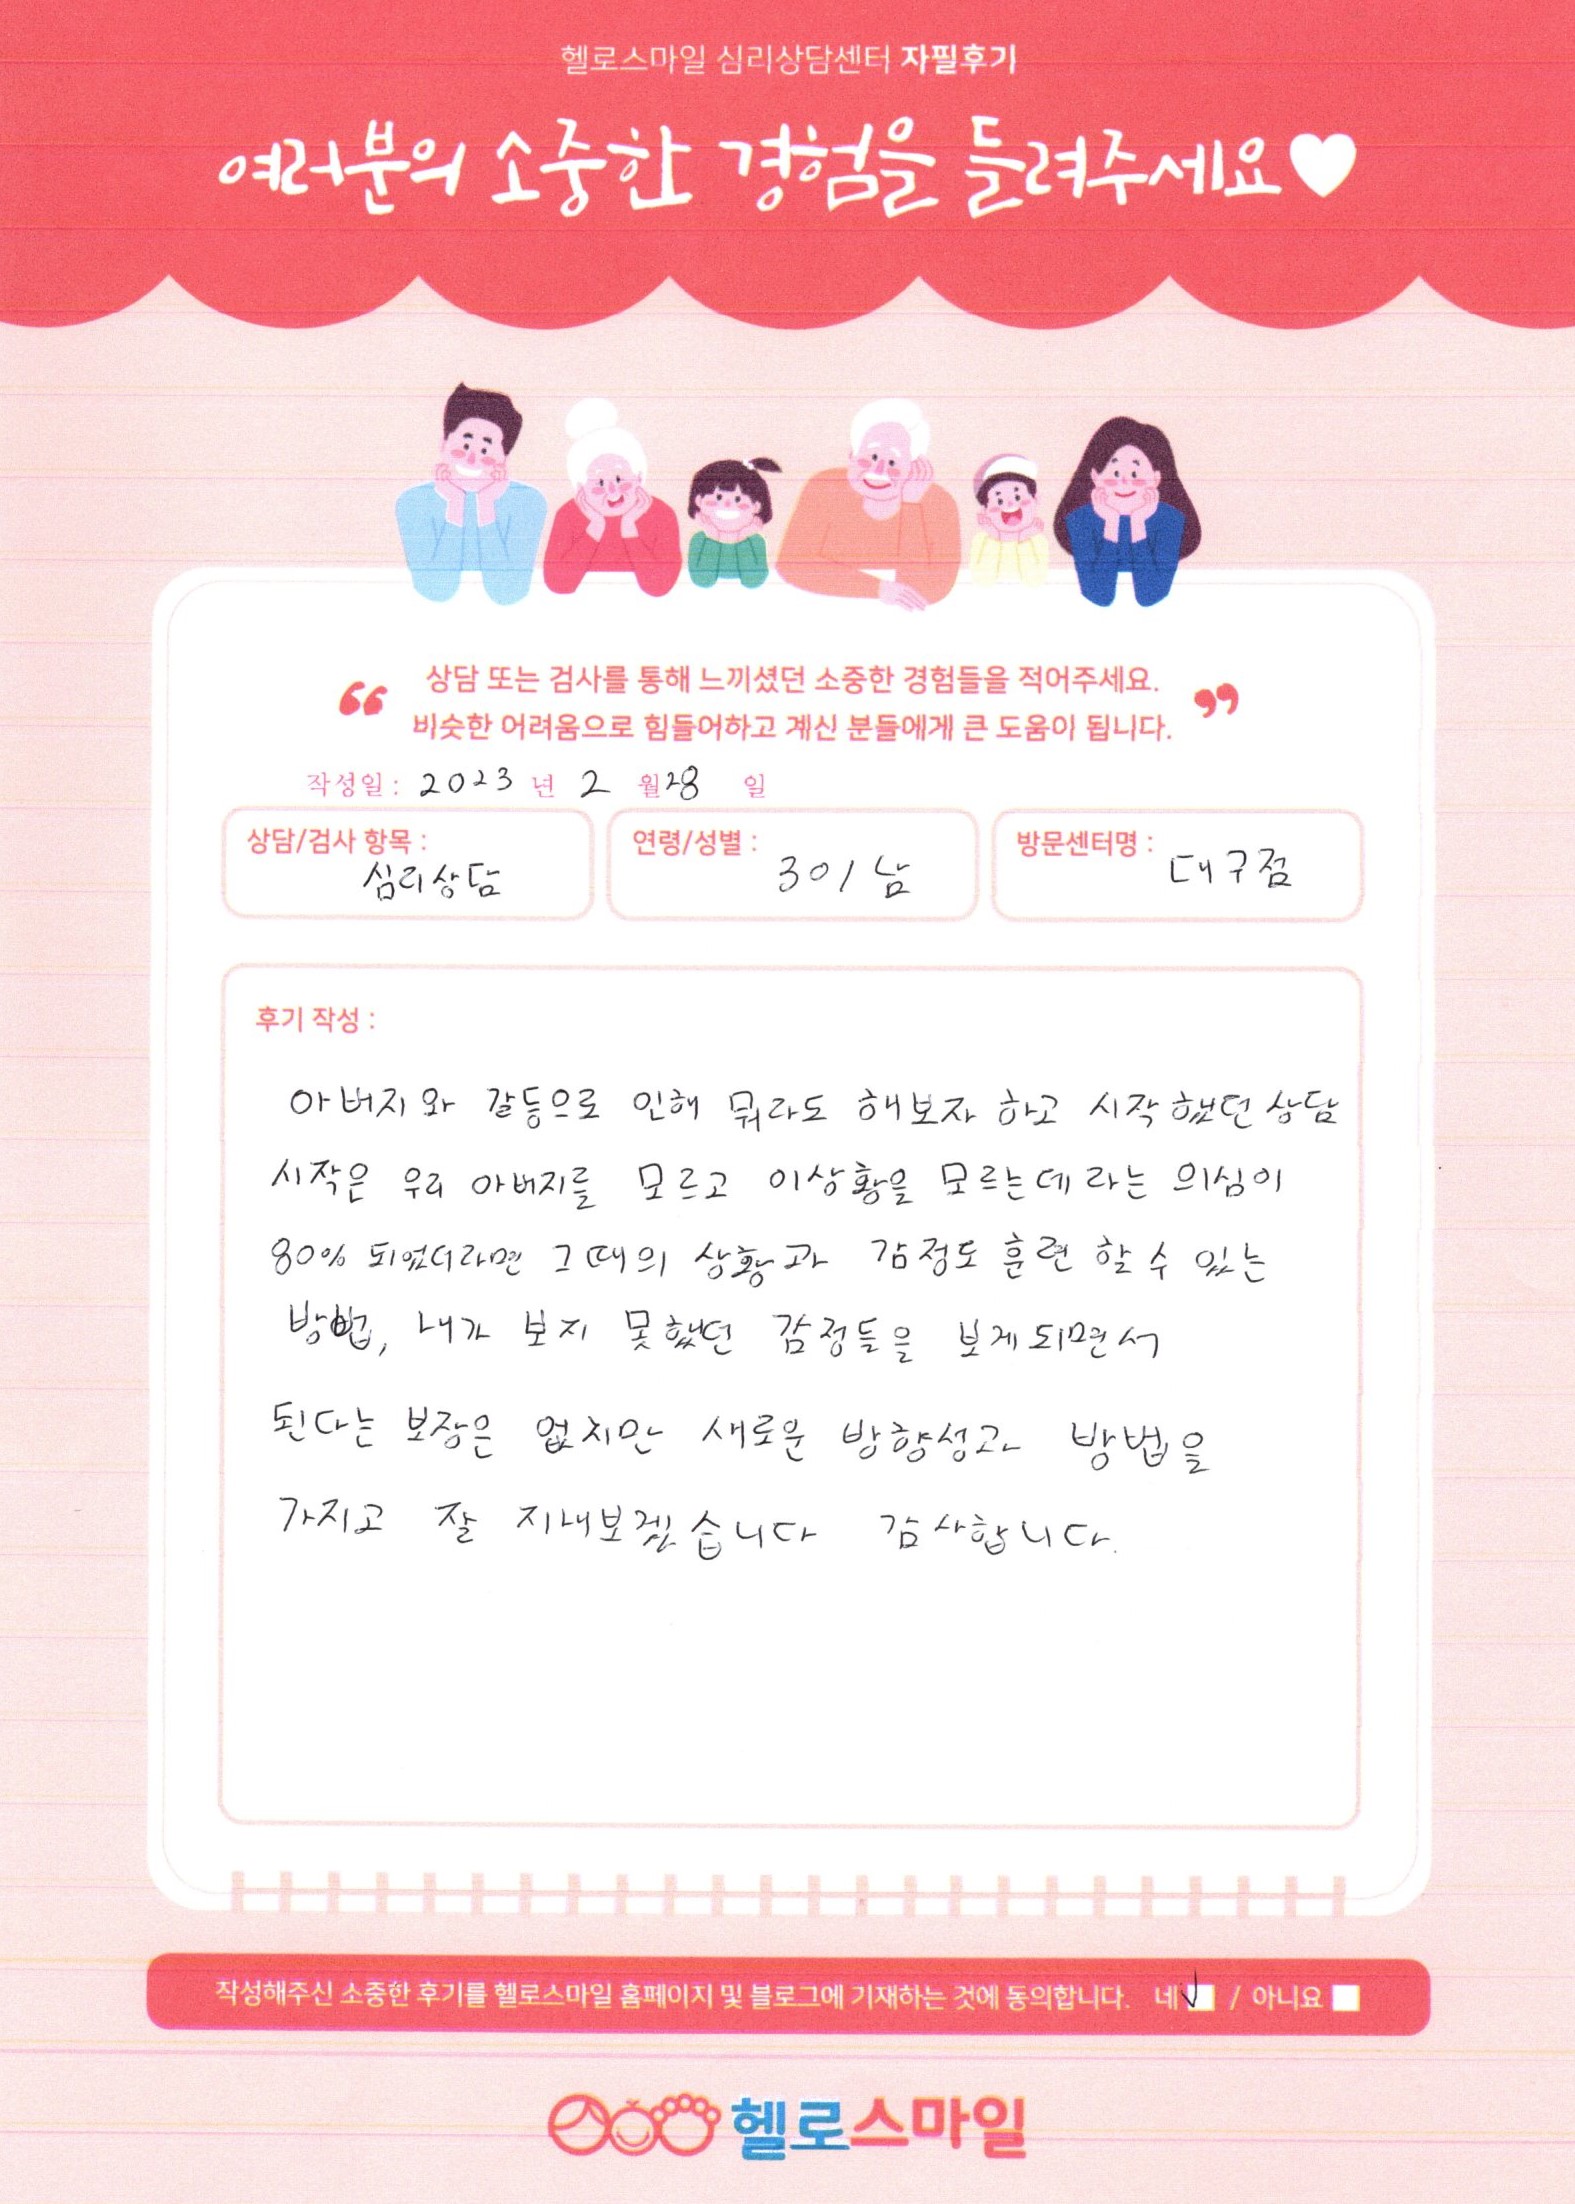 헬로스마일 심리상담센터 자필후기
여러분의 소중한 경험을 들려주세요♥
“ 상담 또는 검사를 통해 느끼셨던 소중한 경험들을 적어주세요.
비슷한 어려움으로 힘들어하고 계신 분들에게 큰 도움이 됩니다. ”
작성일 : 2023 년 2 월 28 일
상담/검사 항목 : 심리상담
연령/성별 : 30 / 남
방문센터명 : 대구점
후기 작성 :
아버지와 갈등으로 인해 뭐라도 해보자 하고 시작했던 상담
시작은 우리 아버지를 모르고 이상황을 모르는데 라는 의심이
80% 되었더라면 그때의 상황과 감정도 훈련 할 수 있는
방법, 내가 보지 못했던 감정들을 보게되면서
된다는 보장은 없지만 새로운 방향성과 방법을
가지고 잘 지내보겠습니다 감사합니다.
작성해주신 소중한 후기를 헬로스마일 홈페이지 및 블로그에 기재하는 것에 동의합니다. 네 / 아니요
헬로스마일